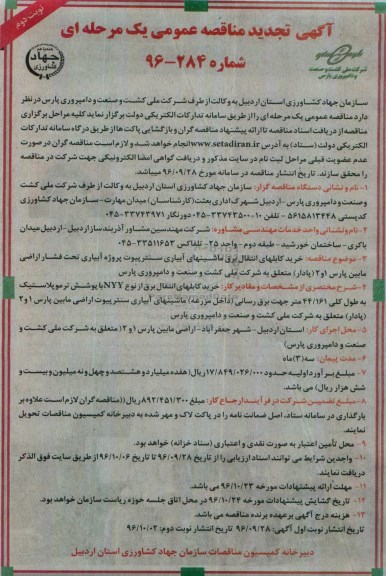 نوبت دوم
آگهی تجدید مناقصه عمومی یک مرحله ای
شماره ۲۸۴-۹۶
جهاد کشاورزی
شرکت ملی کشت و صنعت و دامپروری پارس
سازمان جهاد کشاورزی استان اردبیل به وکالت از طرف شرکت ملی کشت و صنعت و دامپروری پارس در نظر
دارد مناقصه عمومی یک مرحله ای را از طریق سامانه تدارکات الکترونیکی دولت برگزار نماید کلیه مراحل برگزاری
مناقصه از دریافت اسناد مناقصه تا ارائه پیشنهاد مناقصه گران و بازگشایی پاکت ها از طریق درگاه سامانه تدارکات
الکترونیکی دولت (ستاد) به آدرس www.setadiran.ir انجام خواهد شد و لازم است مناقصه گران در صورت
عدم عضویت قبلی مراحل ثبت نام در سایت مذکور و دریافت گواهی امضا الکترونیکی جهت شرکت در مناقصه
را محقق سازند. تاریخ انتشار مناقصه در سامانه مورخ ۹۶/۰۹/۲۸ میباشد.
۱- نام و نشانی دستگاه مناقصه گزار: سازمان جهاد کشاورزی استان اردبیل به وکالت از طرف شرکت ملی کشت
وصنعت و دامپروری پارس - اردبیل شهرک اداری بعثت (کارشناسان) میدان مهارت - سازمان جهاد کشاورزی
کدپستی ۵۶۱۵۸۱۳۴۴۸ - تلفن ۱۰-۳۳۷۴۳۵۰۰-۰۴۵ دورنگار ۳۳۷۴۳۹۷۱-۰۴۵
۲- نام و نشانی واحد خدمات مهندسی مشاوره: شرکت مهندسین مشاور آذربندساز اردبیل - اردبیل میدان
باکری - ساختمان خورشید - طبقه دوم - واحد ۲۵ - تلفاکس ۳۳۵۱۱۶۵۳-۰۴۵
۳- موضوع مناقصه: خرید کابلهای انتقال برق ماشینهای آبیاری سنترپیوت پروژه آبیاری تحت فشار اراضی
مابین پارس ۱و۲ (پادار) متعلق به شرکت ملی کشت و صنعت و دامپروری پارس
۴- شرح مختصری از مشخصات و مقادیر کار: خرید کابلهای انتقال برق از نوع NYY با پوشش ترموپلاستیک
به طول کلی ۴۴/۱۶۱ متر جهت برق رسانی (داخل مزرعه) ماشینهای آبیاری سنترپیوت اراضی مابین پارس ۱و۲
(پادار) متعلق به شرکت ملی کشت و صنعت و دامپروری پارس
۵- محل اجرای کار: استان اردبیل - شهر جعفرآباد - اراضی مابین پارس ۱و۲ (متعلق به شرکت ملی کشت و
صنعت و دامپروری پارس)
۶- مدت پیمان: سه (۳) ماه
۷- مبلغ برآورد اولیه حدود ۱۷/۸۴۹/۰۲۶/۰۰۰ ریال (هفده میلیارد و هشتصد و چهل و نه میلیون و بیست و
شش هزار ریال) می باشد.
۸- مبلغ تضمین شرکت در فرآیند ارجاع کار: مبلغ ۸۹۲/۴۵۱/۳۰۰ ریال (مناقصه گران لازم است علاوه بر
بارگذاری در سامانه ستاد، اصل ضمانت نامه را در پاکت لاک و مهر شده به دبیرخانه کمیسیون مناقصات تحویل
نمایند.
۹- محل تأمین اعتبار به صورت نقدی و اعتباری (سناد خزانه) خواهد بود.
۱۰- واجدین شرایط می توانند اسناد ارزیابی را از تاریخ ۹۶/۰۹/۲۸ تا تاریخ ۹۶/۱۰/۰۶ از طریق سایت فوق الذکر
دریافت نمایند.
۱۱- مهلت ارائه پیشنهادات مورخه ۹۶/۱۰/۲۳ می باشد.
۱۲- تاریخ گشایش پیشنهادات مورخه ۹۶/۱۰/۲۴ در محل اتاق جلسه حوزه ریاست سازمان خواهد بود.
۱۳- هزینه درج آگهی بر عهده برنده مناقصه می باشد.
تاریخ انتشار نوبت اول آگهی: ۹۶/۰۹/۲۸ تاریخ انتشار نوبت دوم: ۹۶/۱۰/۰۲
دبیرخانه کمیسیون مناقصات سازمان جهاد کشاورزی استان اردبیل